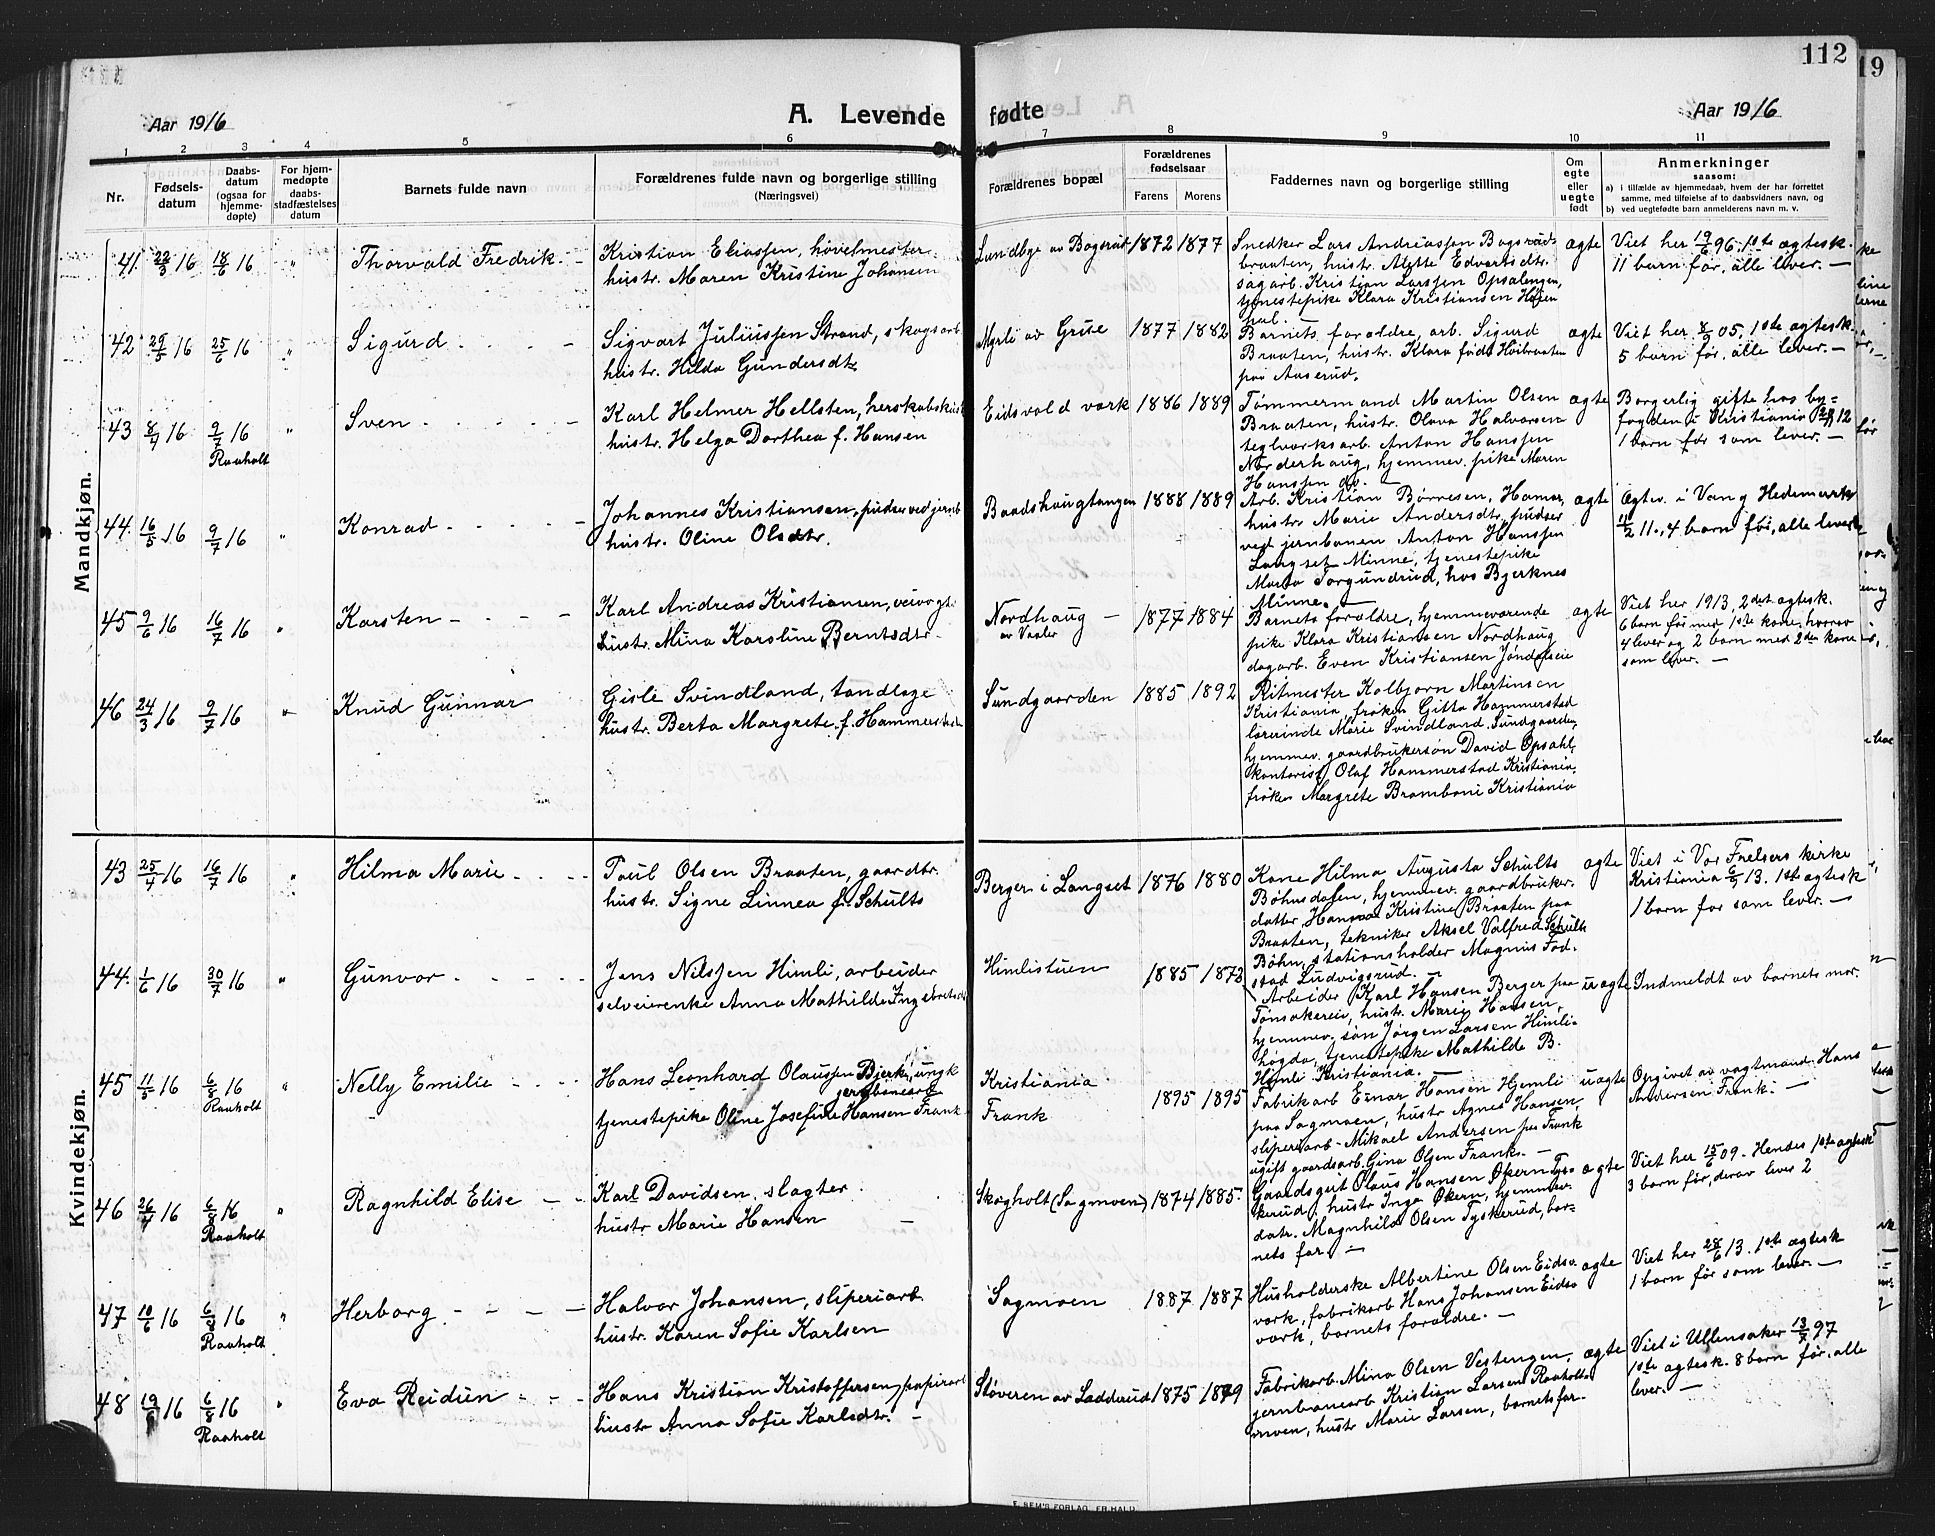 112
19
Aar 1916
A. Levende
fødte
Aar 1916
1 2 3 4 5 6
7 8 9 10 11
Nr.
Fødsels-
datum
Daabs-
datum
(ogsaa for
hjemme-
døpte)
For hjem-
medøpte
daabs-
stadfæstelses
datum
Barnets fulde navn
Forældrenes fulde navn og borgerlige stilling
(Næringsvei)
Forældrenes bopæl
Forældrenes
fødselsaar
Farens Morens
Faddernes navn og borgerlige stilling
Om
egte
eller
uegte
født
Anmerkninger
saasom:
a) i tilfælde av hjemmedaab, hvem der har forrettet
samme, med tilføielse af to daabsvidners navn, og
b) ved uegtefødte barn anmelderens navn m. v.
Mandkjøn.
41. 22/3 16 18/6 16 " Thorvald Fredrik.
Kristian Eliassen, høvelmester
hustr. Maren Kristine Johansen
Lundbye av Bøgsrud 1872 1877
Snedker Lars Andreassen Bøgsruds
braaten, hustr. Alette Edvartsdtr.
sagarb. Kristian Larssen Opsalengen,
tjenestepike Klara Kristiansen
ægte
Viet her 19/6 96. 1ste ægtesk.
11 barn før, alle lever. —
42 29/5 16 25/6 16 " Sigurd
Sigvart Juliussen Strand, skogsarb
hustr. Hilda Gundersdtr.
Myrli av Grise 1877 1882
Barnets forældre, arb. Sigurd
Braaten, hustr. Klara født Høibraaten
paa Aaserud.
ægte
Viet her 8/9 05, 1ste ægtesk.
5 barn før, alle lever. —
43 8/4 16 9/7 16 " Sven
Raaholt
Karl Helmer Hellsten, herskabskusk
hustr. Helga Dorthea f. Hansen
Eidsvold værk 1886 1889
Tømmermand Martin Olsen
Braaten, hustr. Olava Halvorsen
teglværksarb. Anton Hanssen
Nørderhaug, hjemmev. pike Maren
Hanssen do. —
ægte
Borgerlig gifte hos by-
fogden i Kristiania 12
1 barn før som lever. —
44. 16/5 16 9/7 16 " Konrad
Johannes Kristiansen, pudser ved jernb
hustr. Oline Olsdtr.
Baadshaugtangen 1888 1889
Arb. Kristian Børresen, Hamar,
hustr Marie Andersdtr, pudser
ved jernbanen Anton Hanssen
Langset Minne, tjenestepike
Marta Torgundrud, hos Bjerknes
Minne. —
ægte
Ægtev. i Vang Hedemark
11/2 11., 4 barn før, alle lever
45 9/6 16 16/7 16 " Karsten
Karl Andreas Kristiansen, veivogter
hustr. Mina Karoline Berntsdtr.
Nordhaug
av Vaaler
1877 1884
Barnets forældre, hjemmeværende
pike Klara Kristiansen Nordhaug
dagarb. Even Kristiansen Jøndalseie
ægte
Viet her 1913, 2det ægtesk.
6 barn før med 1ste kone, hvorav
4 lever og 2 barn med 2den kone
som lever. —
46 24/3 16 9/7 16 " Knud Gunnar
Gisle Svindland, tandlæge
hustr. Berta Margrete f. Hammerstad
Sundgaarden 1885 1892
Ritmester Kolbjørn Martinsen
Kristiania, frøken Gitta Hammerstad
lærerinde Marie Svindland Sundgaarden
hjemmev. gaardbrukersøn David Opsahl,
kontorist Olaf Hammerstad Kristiania,
frøken Margrete Bramboni Kristiania
Kvindekjøn.
43 25/4 16 16/7 16 " Hilma Marie
Paul Olsen Braaten, gaardbr.
hustr. Signe Linnea f. Schults
Berger i Langset 1876 1880
Kone Hilma Augusta Schults
Bøhnsdalen, hjemmev. gaardbruker-
datter Hanna Kristine Braaten paa
Braaten, tekniker Aksel Valfred Schults
Bøhn, stationsholder Magnus Fod-
stad Ludvigsrud. —
ægte
Viet i Vor Frelsers kirke
Kristiania 13. 1ste ægtesk
1 barn før som lever. —
44. 1/6 16 30/7 16 " Gunvor
Jens Nilssen Himli, arbeider
selveierenke Anna Mathilde Ingebretsdtr
Himlistuen 1885 1873
Arbeider Karl Hansen Berger paa
Tønsakereie, hustr. Marie Hansen,
hjemmev. søn Jørgen Larsen Himli-
høgda, tjenestepike Mathilde B.
Himli Kristiania. —
uægte
Indmeldt av barnets mor.
45 11/5 16 6/8 16 " Nelly Emilie
Raaholt
Hans Leonhard Olaussen Bjerke, ungk
jernbanearb
tjenestepike Oline Josefine Hansen Frank
Kristiania
Frank
1895 1895
Fabrikarb Einar Hansen Hjemli
paa Sagmoen, hustr Agnes Hansen,
sliperiarb. Mikael Andersen paa Frank
ugift gaardsarb. Gina Olsen Frank. —
uægte
Opgivet av vagtmand Hans
Andersen Frank. —
46 26/4 16 6/8 16 " Ragnhild Elise
Raaholt
Karl Davidsen, slagter
hustr Marie Hansen
Skogholt (Sagmoen) 1874 1885.
Gaardsgut Olaus Hansen Økern Tys-
kerud, hustr Inga Økern, hjemmev.
datr. Magnhild Olsen Tyskerud, bar-
nets far. —
ægte
Viet her 15/6 09. Hendes 1ste ægtesk
3 barn før, derav lever 2
47 10/6 16 6/8 16 " Herborg
Raaholt
Halvor Johansen, sliperiarb
hustr. Karen Sofie Karlsen
Sagmoen 1887 1887
Husholderske Albertine Olsen Eidsv.
værk, fabrikarb Hans Johansen Eidsv
værk, barnets forældre. —
ægte
Viet her 28/6 13. 1ste ægtesk
1 barn før som lever. —
48 19/6 16 6/8 16 " Eva Reidun
Raaholt
Hans Kristian Kristoffersen, papirarb
hustr Anna Sofie Karlsdtr. —
Støveren av Ladderud 1875 1879
Fabrikarb. Mina Olsen Vestengen,
jernbanearb Kristian Larsen Raaholt-
moen, hustr Marie Larsen, barnets far.
ægte
Viet i Ullensaker 13/7 97
1ste ægtesk. 8 barn før, alle
lever. —
E. SEM'S FORLAG, FR.HALD.